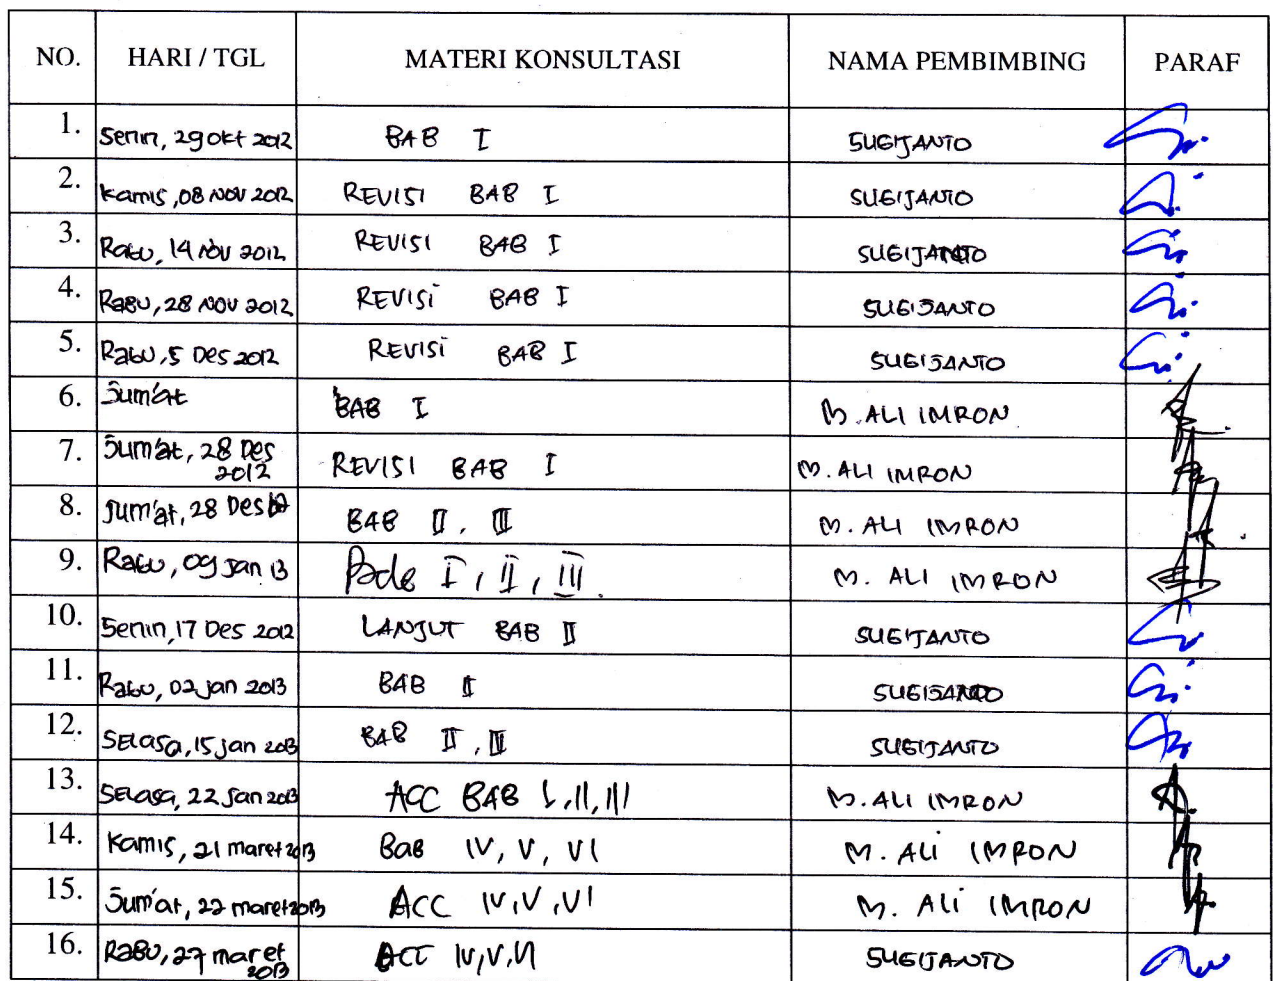 NO. HARI / TGL MATERI KONSULTASI NAMA PEMBIMBING PARAF
1. Senin, 29 okt 2012 BAB I SUGIJANTO
2. Kamis, 08 NOV 2012 REVISI BAB I SUGIJANTO
3. Rabu, 14 Nov 2012 REVISI BAB I SUGIJANTO
4. RABU, 28 NOV 2012 REVISI BAB I SUGIJANTO
5. Rabu, 5 Des 2012 REVISI BAB I SUGIJANTO
6. Jum'at BAB I M. ALI IMRON
7. Jum'at, 28 Des 2012 REVISI BAB I M. ALI IMRON
8. Jum'at, 28 Des 12 BAB II, III M. ALI IMRON
9. Rabu, 09 Jan 13 Bab I, II, III. M. ALI IMRON
10. Senin, 17 Des 2012 LANJUT BAB II SUGIJANTO
11. Rabu, 02 Jan 2013 BAB II SUGIJANTO
12. SELASA, 15 Jan 2013 BAB II, III SUGIJANTO
13. SELASA, 22 Jan 2013 ACC BAB I, II, III M. ALI IMRON
14. Kamis, 21 maret 2013 Bab IV, V, VI M. ALI IMRON
15. Jum'at, 22 maret 2013 ACC IV, V, VI M. ALI IMRON
16. RABU, 27 maret 2013 ACC IV, V, VI SUGIJANTO